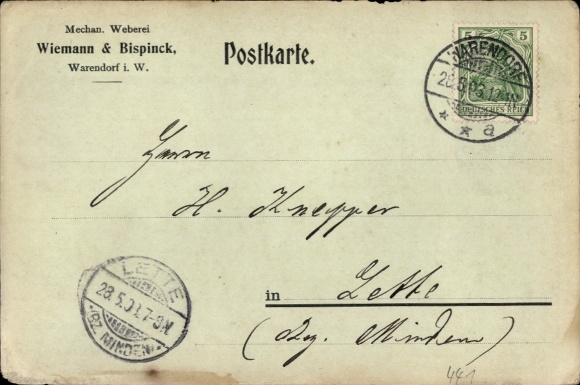 Mechan. Weberei
Wiemann & Bispinck,
Warendorf i. W.
Postkarte.
5 5
DEUTSCHES REICH
WARENDORF
28.5.
* * a
Herrn
H. Knepper
in Lette
(Bez. Minden)
LETTE
28.5.0 7-8N
(BZ. MINDEN)
441